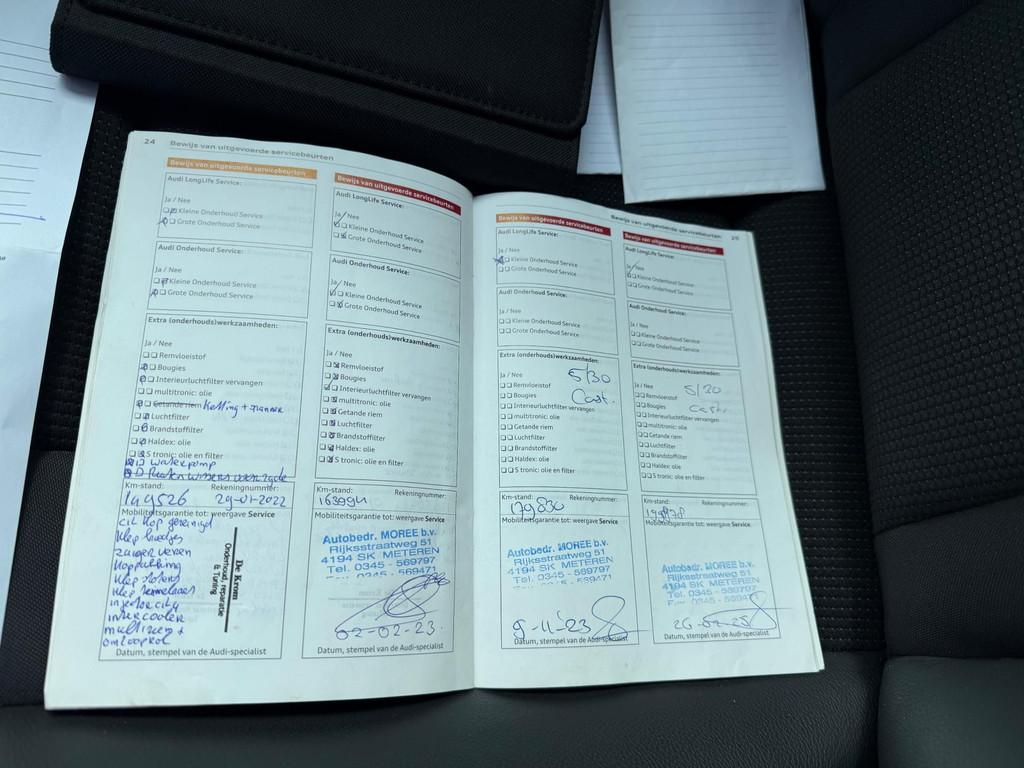 24 Bewijs van uitgevoerde servicebeurten
Bewijs van uitgevoerde servicebeurten
Audi LongLife Service:
Ja / Nee
Kleine Onderhoud Service
Grote Onderhoud Service
Audi Onderhoud Service:
Ja / Nee
Kleine Onderhoud Service
Grote Onderhoud Service
Extra (onderhouds)werkzaamheden:
Ja / Nee
Remvloeistof
Bougies
Interieurluchtfilter vervangen
multitronic: olie
Getande riem Ketting + spanner
Luchtfilter
Brandstoffilter
Haldex: olie
S tronic: olie en filter
waterpomp
Km-stand: Rekeningnummer:
149526 29-01-2022
Mobiliteitsgarantie tot: weergave Service
cil kop gereinigd
klep
zuiger veren
koppakking
klep
klep
intercooler
De Krom
Onderhoud, reparatie
& Tuning
Datum, stempel van de Audi-specialist
Bewijs van uitgevoerde servicebeurten
Audi LongLife Service:
Ja / Nee
Kleine Onderhoud Service
Grote Onderhoud Service
Audi Onderhoud Service:
Ja / Nee
Kleine Onderhoud Service
Grote Onderhoud Service
Extra (onderhouds)werkzaamheden:
Ja / Nee
Remvloeistof
Bougies
Interieurluchtfilter vervangen
multitronic: olie
Getande riem
Luchtfilter
Brandstoffilter
Haldex: olie
S tronic: olie en filter
Km-stand: Rekeningnummer:
163994
Mobiliteitsgarantie tot: weergave Service
Autobedr. MOREE b.v.
Rijksstraatweg 51
4194 SK METEREN
Tel. 0345 - 569797
Fax 0345 - 569471
02-02-23.
Datum, stempel van de Audi-specialist
Bewijs van uitgevoerde servicebeurten 25
Bewijs van uitgevoerde servicebeurten
Audi LongLife Service:
Ja / Nee
Kleine Onderhoud Service
Grote Onderhoud Service
Audi Onderhoud Service:
Ja / Nee
Kleine Onderhoud Service
Grote Onderhoud Service
Extra (onderhouds)werkzaamheden:
Ja / Nee 5/30
Remvloeistof Cast.
Bougies
Interieurluchtfilter vervangen
multitronic: olie
Getande riem
Luchtfilter
Brandstoffilter
Haldex: olie
S tronic: olie en filter
Km-stand: Rekeningnummer:
179830
Mobiliteitsgarantie tot: weergave Service
Autobedr. MOREE b.v.
Rijksstraatweg 51
4194 SK METEREN
Tel. 0345 - 569797
Fax 0345 - 569471
9-11-23
Datum, stempel van de Audi-specialist
Bewijs van uitgevoerde servicebeurten
Audi LongLife Service:
Ja / Nee
Kleine Onderhoud Service
Grote Onderhoud Service
Audi Onderhoud Service:
Ja / Nee
Kleine Onderhoud Service
Grote Onderhoud Service
Extra (onderhouds)werkzaamheden:
Ja / Nee 5/30
Remvloeistof
Bougies Castr.
Interieurluchtfilter vervangen
multitronic: olie
Getande riem
Luchtfilter
Brandstoffilter
Haldex: olie
S tronic: olie en filter
Km-stand: Rekeningnummer:
Mobiliteitsgarantie tot: weergave Service
Autobedr. MOREE b.v.
Rijksstraatweg 51
4194 SK METEREN
Tel. 0345 - 569797
Fax 0345 - 569471
Datum, stempel van de Audi-specialist